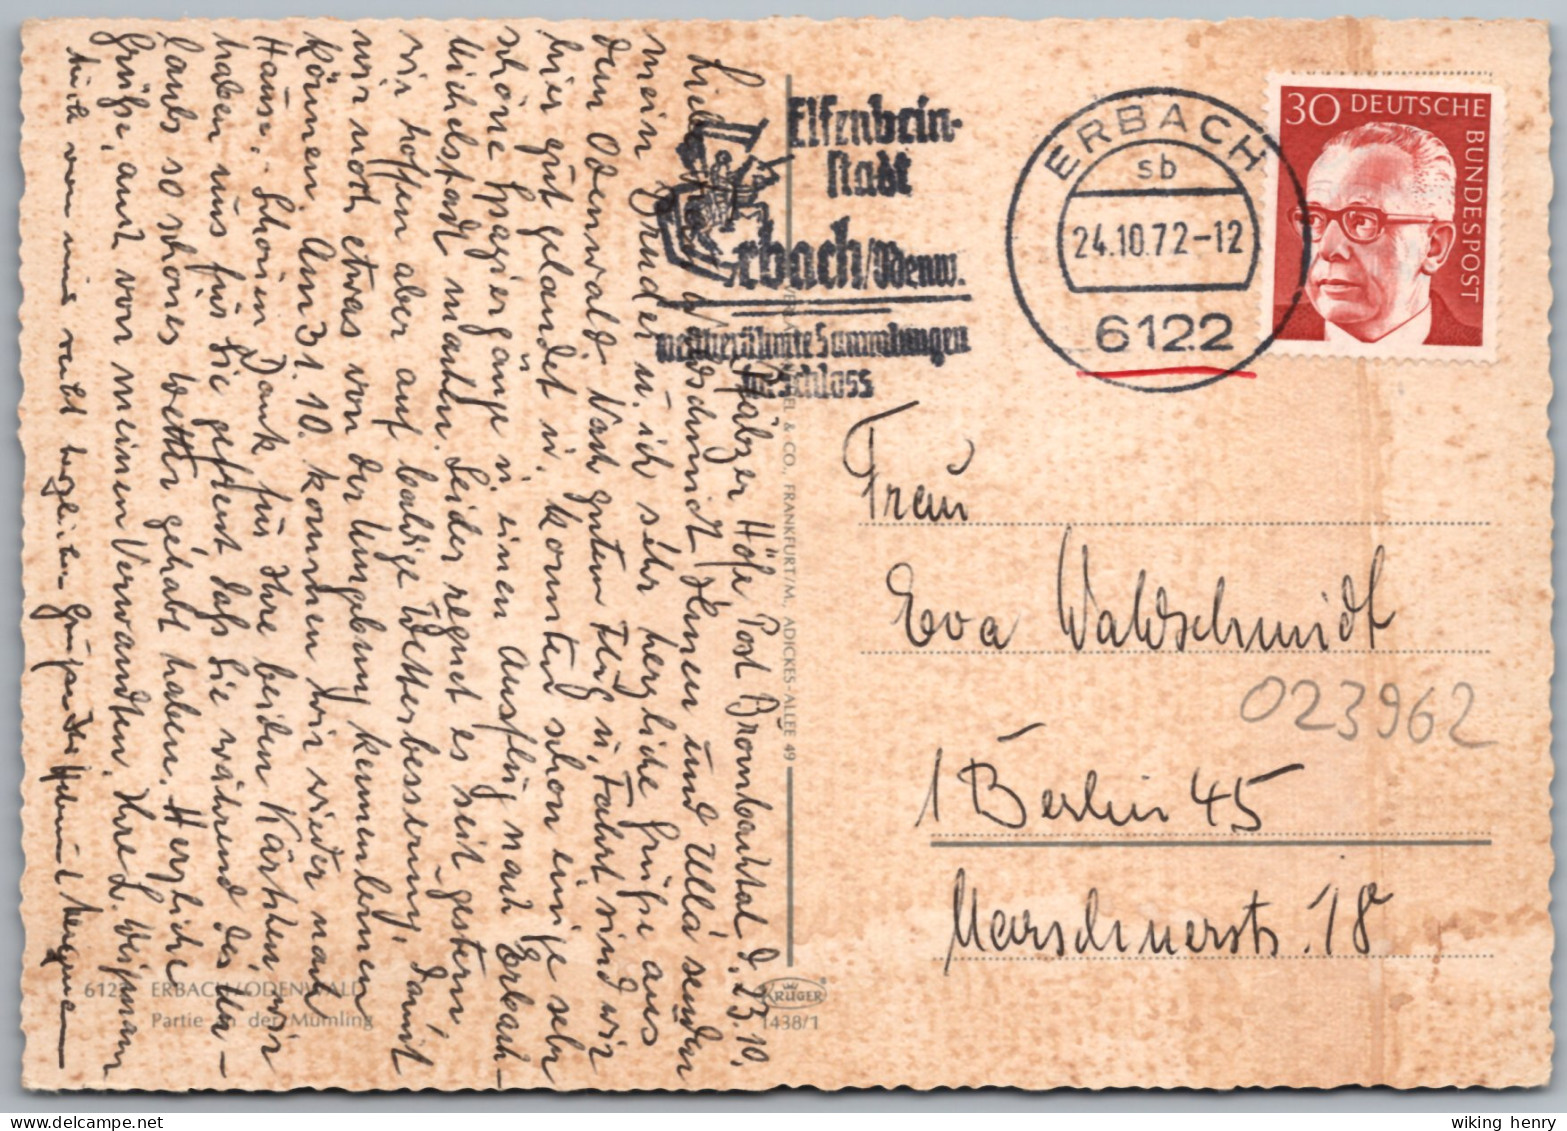 Spälzer Höfe Post Brombachtal d. 23.10.
Liebe Eva Waldschmidt, Ihnen und Ulla senden
mein Bruder u. ich sehr herzliche Grüße aus
dem Odenwald. Nach gutem Flug u. Fahrt sind wir
hier gut gelandet u. konnten schon einige sehr
schöne Spaziergänge u. einen Ausflug nach Erbach-
Michelstadt machen. Leider regnet es seit gestern,
wir hoffen aber auf baldige Wetterbesserung, damit
wir noch etwas von der Umgebung kennenlernen
können. Am 31.10. kommen wir wieder nach
Hause. Schönen Dank für Ihre beiden Kärtchen, wir
haben uns für Sie gefreut daß Sie während des Ur-
laubs so schönes Wetter gehabt haben. Herzliche
Grüße, auch von meinen Verwandten, Ihre L.
Auch von mir recht herzlichen Helmut
Elfenbein-
stadt
Erbach/Odenw.
weltberühmte Sammlungen
im Schloss
ERBACH
sb
24.10.72-12
6122
30 DEUTSCHE BUNDESPOST
Frau
Eva Waldschmidt
023962
1 Berlin 45
Marschnerstr. 18a
VERLAG & CO., FRANKFURT/M. ADICKES-ALLEE 49
KRÜGER
1438/1
6122 ERBACH/ODENWALD
Partie an der Mümling
wiking henry